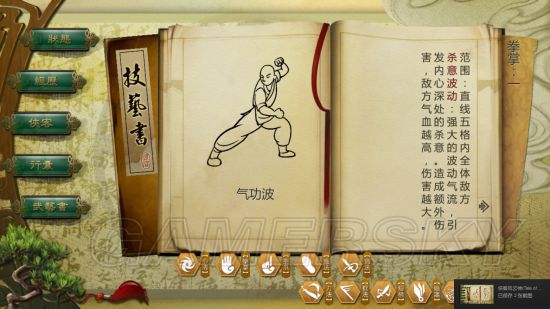 狀態
經歷
俠客
行囊
武藝書
技藝書
气功波
拳掌：一
范围：直线五格内全体敌方
杀意波动：强大的波动气流，引
发内心深处的杀意。造成额外伤
害，敌方气血越高，伤害越大。
GAMERSKY
侠客风云传(Tale of...